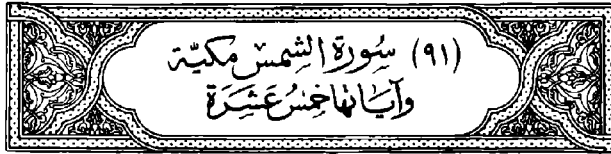 (٩١) سُورَة الشَّمْسِ مَكيَّة
وَآيَاتُهَا خَمْسُ عَشَرَة